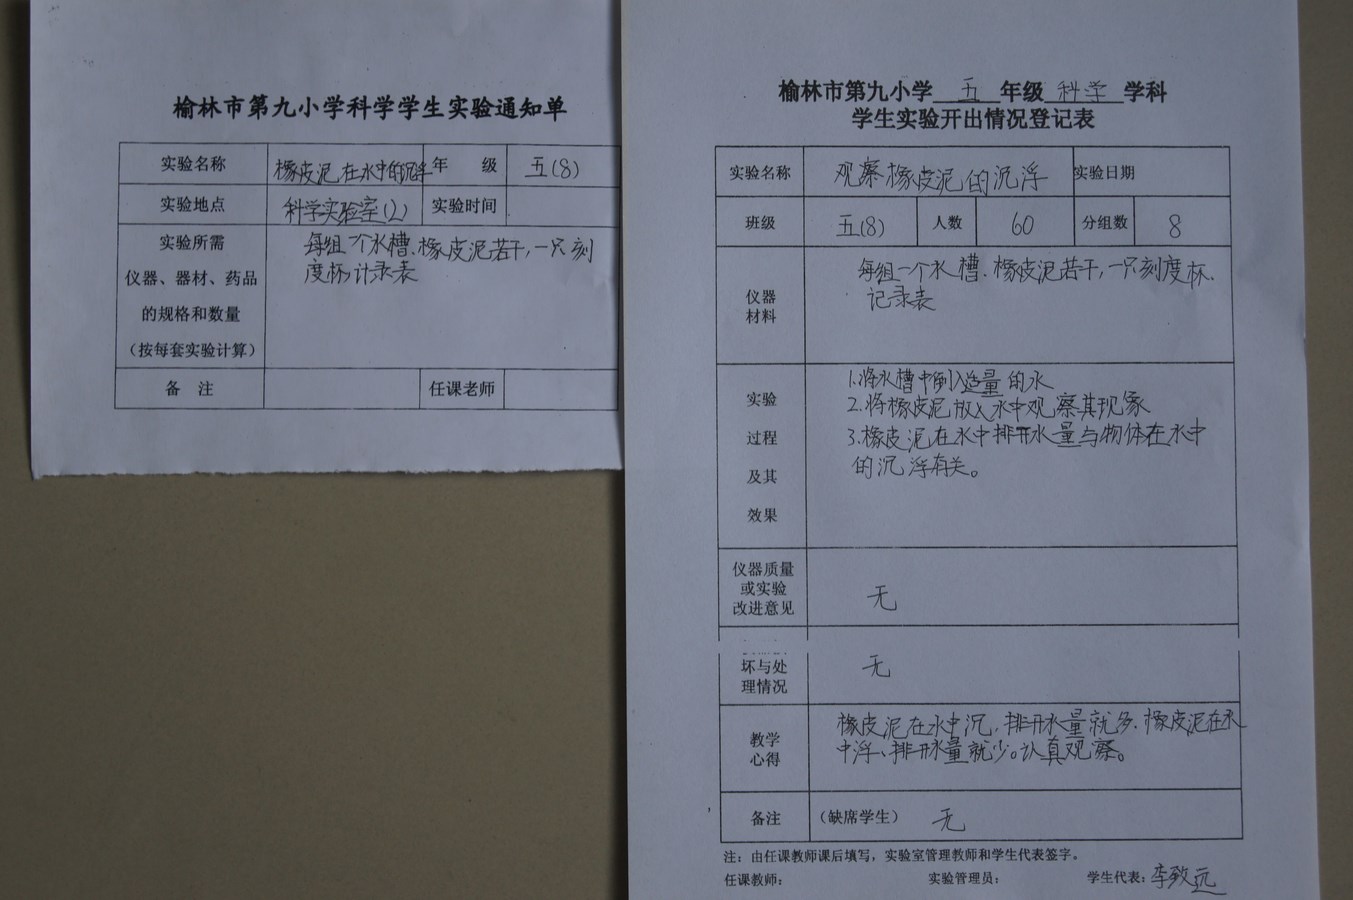 榆林市第九小学科学学生实验通知单
实验名称 橡皮泥在水中的沉浮 年 级 五(8)
实验地点 科学实验室(2) 实验时间
实验所需
仪器、器材、药品
的规格和数量
(按每套实验计算)
每组一个水槽、橡皮泥若干,一只刻
度杯计录表
备 注 任课老师
榆林市第九小学 五 年级 科学 学科
学生实验开出情况登记表
实验名称 观察橡皮泥的沉浮 实验日期
班级 五(8) 人数 60 分组数 8
仪器
材料
每组一个水槽、橡皮泥若干,一只刻度杯、
记录表
实验
过程
及其
效果
1.将水槽中倒入适量的水
2.将橡皮泥放入水中观察其现象
3.橡皮泥在水中排开水量与物体在水中
的沉浮有关。
仪器质量
或实验
改进意见
无
坏与处
理情况
无
教学
心得
橡皮泥在水中沉,排开水量就多.橡皮泥在水
中浮、排开水量就少。认真观察。
备注 (缺席学生) 无
注:由任课教师课后填写,实验室管理教师和学生代表签字。
任课教师: 实验管理员: 学生代表:李致远